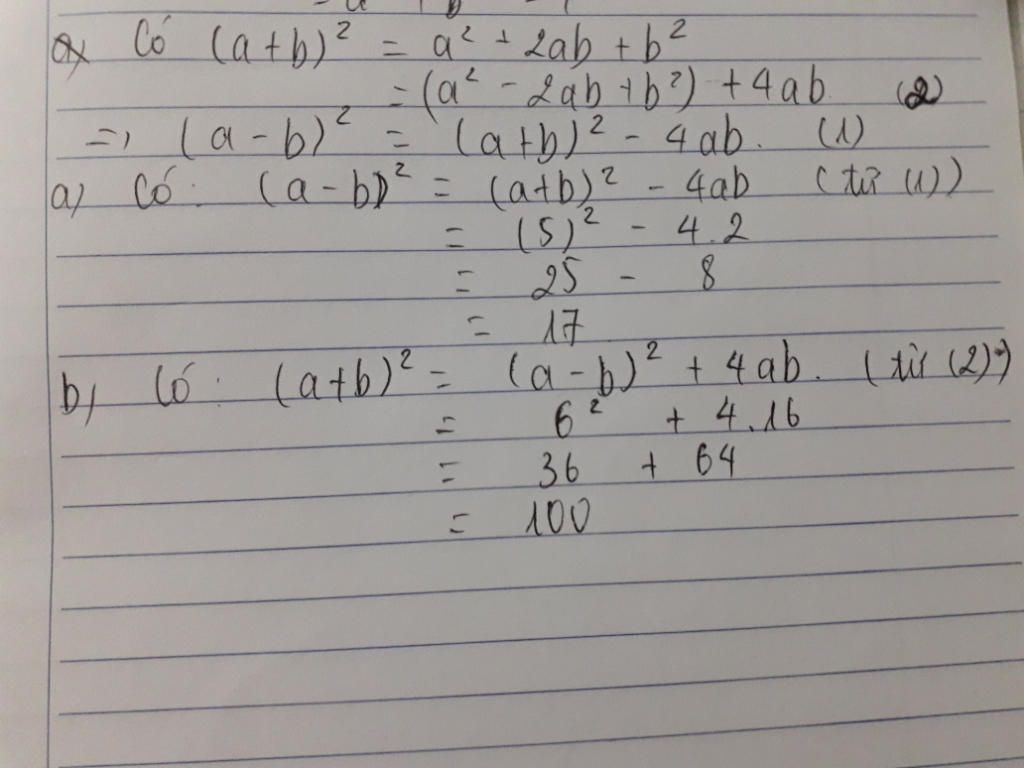 a) Có (a+b)² = a² + 2ab + b²
= (a² - 2ab + b²) + 4ab (2)
=> (a - b)² = (a+b)² - 4ab. (1)
a) Có: (a - b)² = (a+b)² - 4ab (từ (1))
= (5)² - 4.2
= 25 - 8
= 17
b) Có: (a+b)² = (a - b)² + 4ab. (từ (2))
= 6² + 4.16
= 36 + 64
= 100